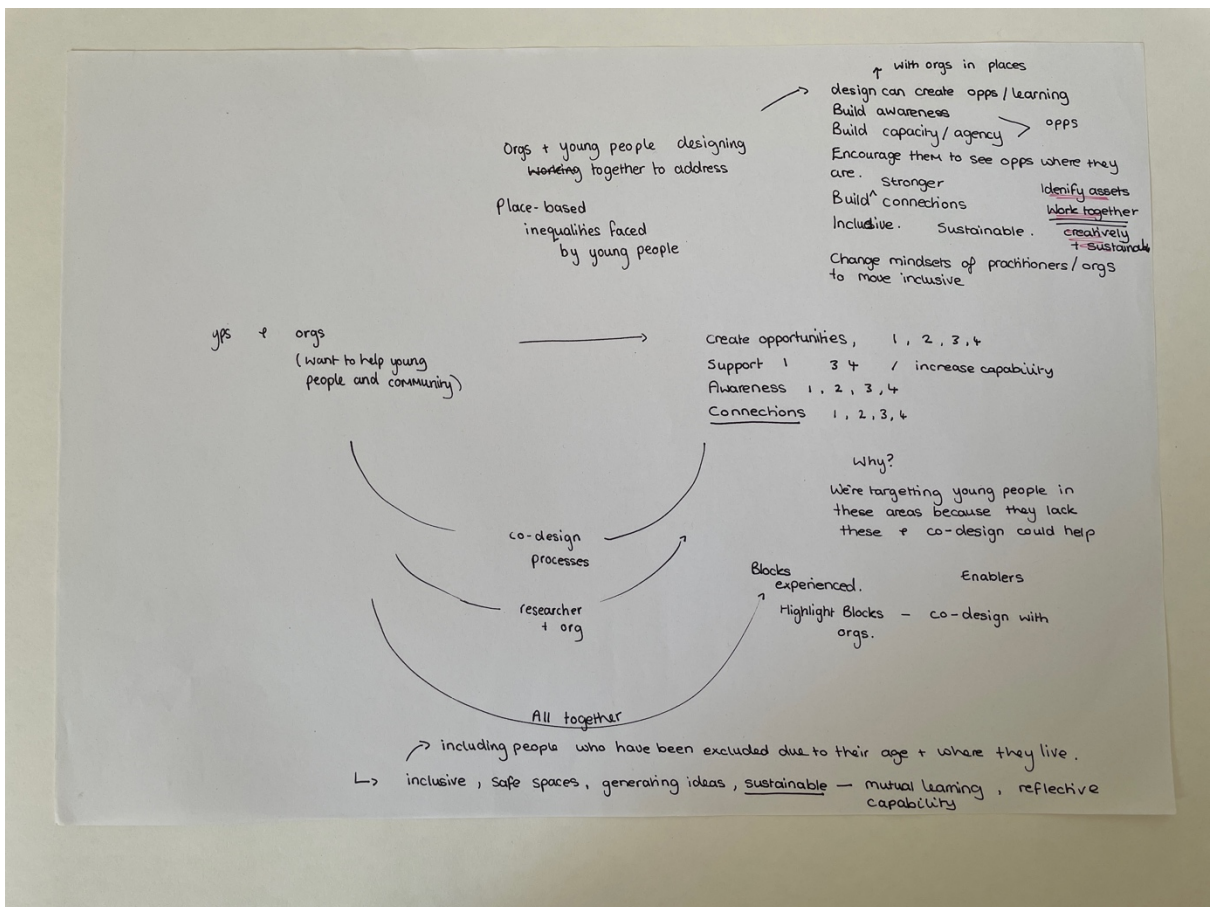 ↑ with orgs in places
design can create opps / learning
Build awareness
Build capacity / agency > opps
Encourage them to see opps where they
are.
Stronger
Build ^ connections
Inclusive. Sustainable.
Idenify assets
Work together
creatively
+ sustainab
Change mindsets of practitioners / orgs
to move inclusive
Orgs + young people designing
working together to address
Place-based
inequalities faced
by young people
yps & orgs
(want to help young
people and community)
create opportunities, 1, 2, 3, 4
Support 1 3 4 / increase capability
Awareness 1, 2, 3, 4
Connections 1, 2, 3, 4
Why?
We're targetting young people in
these areas because they lack
these & co-design could help
co-design
processes
researcher
+ org
Blocks
experienced.
Enablers
Highlight Blocks - co-design with
orgs.
All together
including people who have been excluded due to their age + where they live.
inclusive, safe spaces, generating ideas, sustainable - mutual learning, reflective
capability